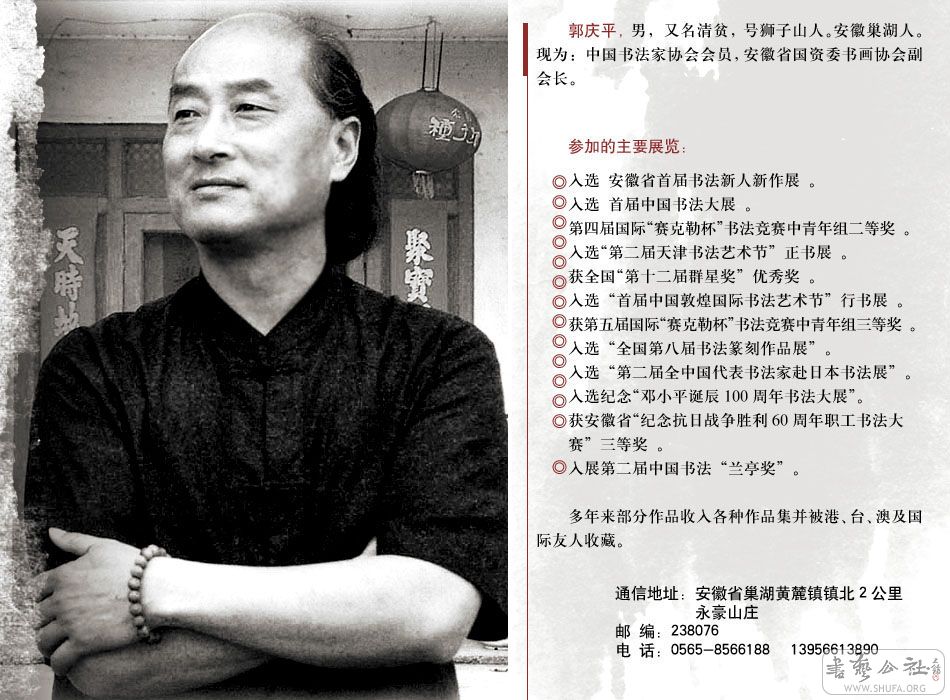 天時地
聚寶
郭庆平，男，又名清贫，号狮子山人。安徽巢湖人。
现为：中国书法家协会会员，安徽省国资委书画协会副
会长。
参加的主要展览：
◎入选 安徽省首届书法新人新作展 。
◎入选 首届中国书法大展 。
◎第四届国际“赛克勒杯”书法竞赛中青年组二等奖 。
◎入选“第二届天津书法艺术节”正书展 。
◎获全国“第十二届群星奖”优秀奖 。
◎入选 “首届中国敦煌国际书法艺术节”行书展 。
◎获第五届国际“赛克勒杯”书法竞赛中青年组三等奖 。
◎入选 “全国第八届书法篆刻作品展”。
◎入选 “第二届全中国代表书法家赴日本书法展”。
◎入选纪念“邓小平诞辰 100 周年书法大展”。
◎获安徽省“纪念抗日战争胜利 60 周年职工书法大
赛”三等奖 。
◎入展第二届中国书法“兰亭奖”。
多年来部分作品收入各种作品集并被港、台、澳及国
际友人收藏。
通信地址：安徽省巢湖黄麓镇镇北 2 公里
永豪山庄
邮 编：238076
电 话：0565-8566188 13956613890
書艺公社
WWW.SHUFA.ORG